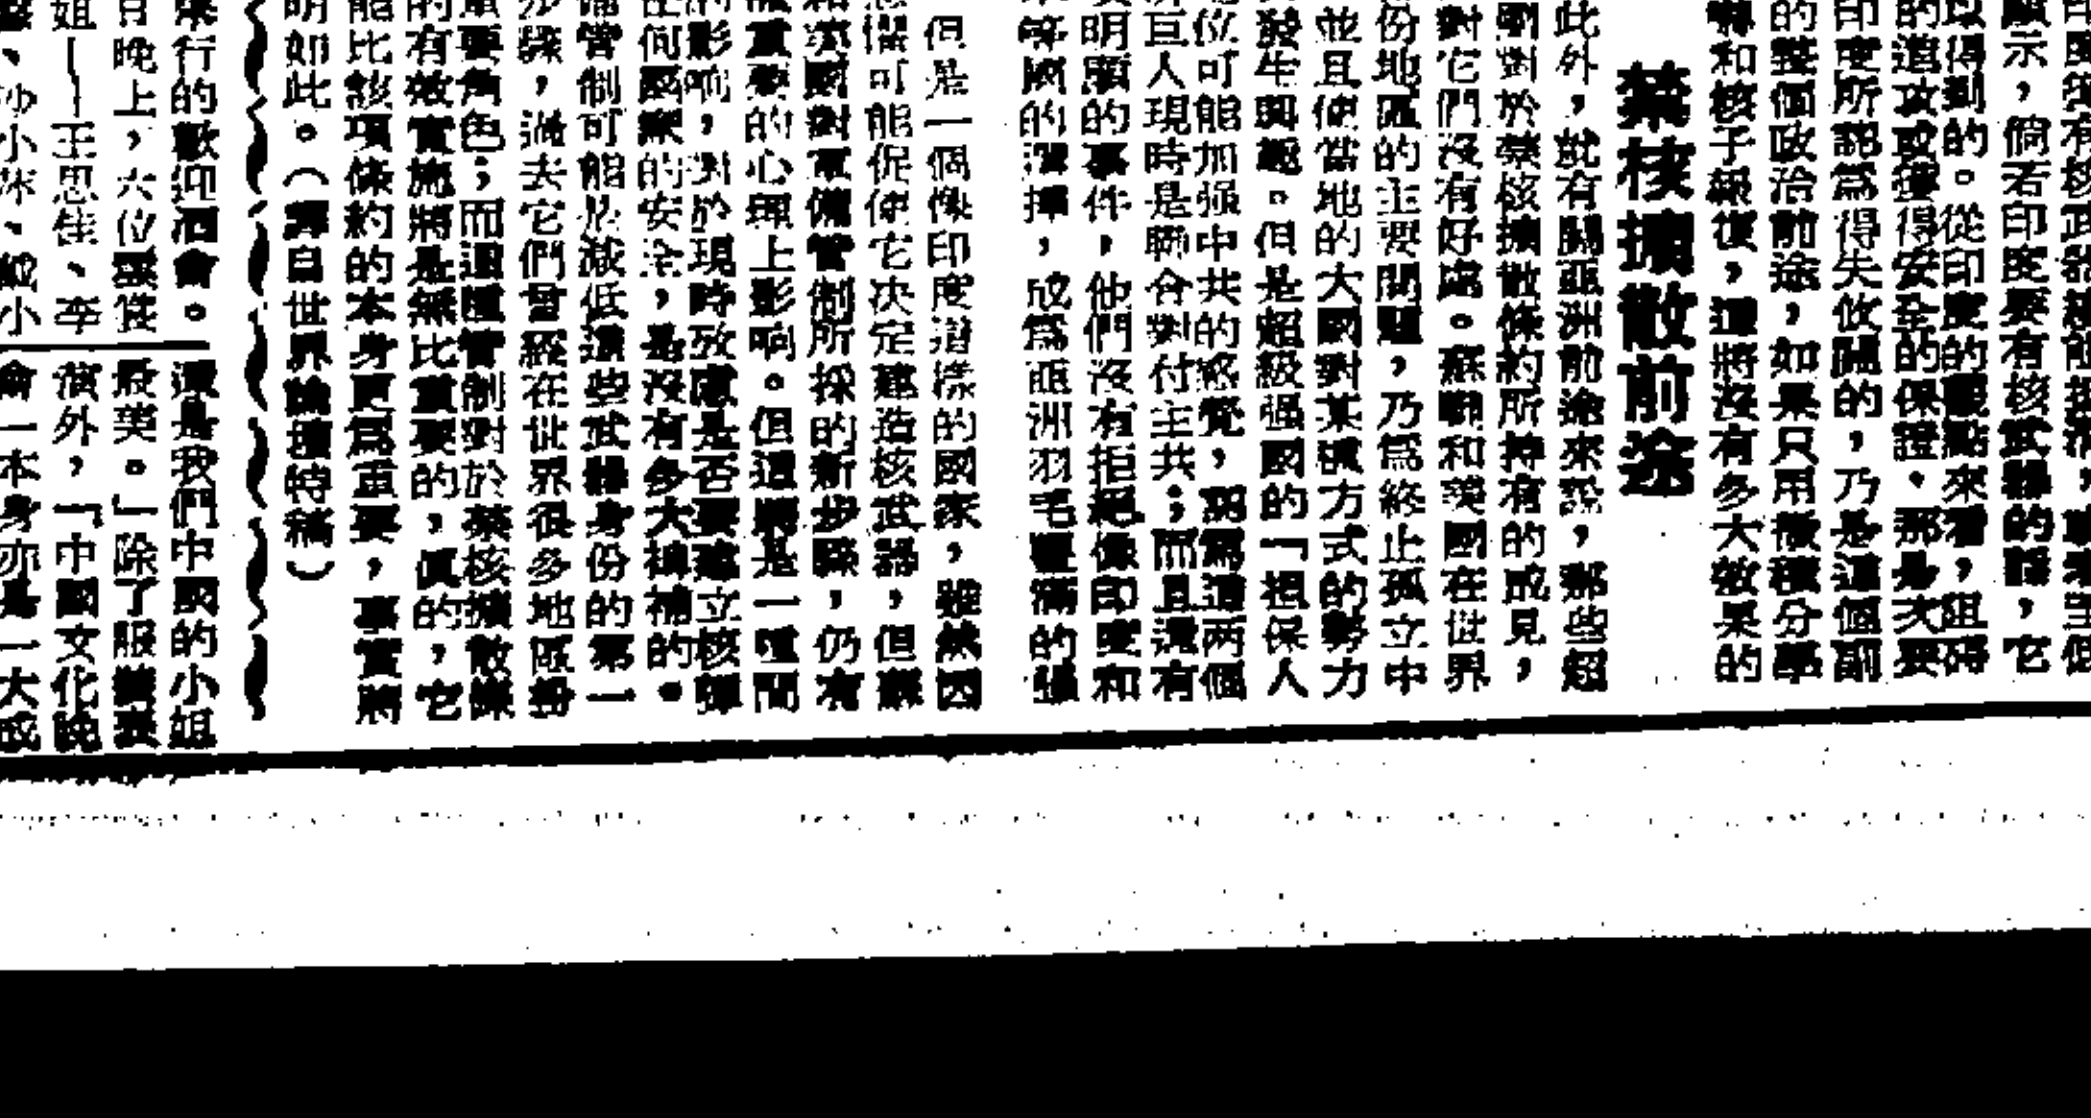 以得到的。從印度的觀點來看，阻碍
的進攻或獲得安全的保證。那是次要
印度所認爲得失攸關的，乃是這個副
的整個政治前途，如果只用微積分學
和核子報復，還將沒有多大效果的
禁核擴散前途
此外，就有關亞洲前途來說，那些超
對於禁核擴散條約所持有的成見，
對它們沒有好處。蘇聯和美國在世界
份地區的主要問題，乃爲終止孤立中
並且使當地的大國對某種方式的勢力
發生興趣。但是超級强國的「担保人
位可能加强中共的感覺，認爲這两個
巨人現時是聯合對付主共；而且還有
明顯的事件，他們沒有拒絕像印度和
等國的選擇，成爲亞洲羽毛豐滿的强
但是一個像印度這樣的國家，雖然因
可能促使它决定建造核武器，但蘇
和美國對軍備管制所採的新步驟，仍有
重要的心理上影响。但這將是一種間
的影响，對於現時攷慮是否要建立核彈
任何國家的安全，是沒有多大補補的。
備管制可能是减低這些武器身份的第一
步驟，過去它們曾經在世界很多地區扮
重要角色；而這種管制對於禁核擴散條
的有效實施將是無比重要的，眞的，它
能比該項條約的本身更爲重要，事實將
明如此。（譯自世界論壇特稿）
行的歡迎酒會。
日晚上，六位
姐——王思佳、李
還是我們中國的小姐
最美。」除了服裝表
演外，「中國文化晚
會一本身亦是一大成